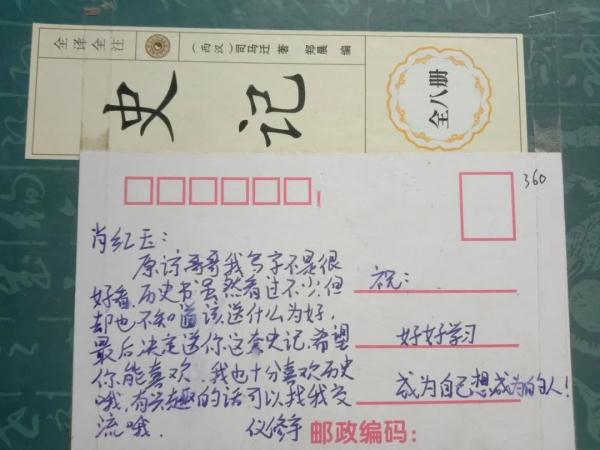 全译全注
（西汉）司马迁 著 郑晨 编
史记
全八册
360
肖红玉：
原谅哥哥我写字不是很
好看，历史书虽然看过不少，但
却也不知道该送什么为好，
最后决定送你这套史记，希望
你能喜欢，我也十分喜欢历史
哦，有兴趣的话可以找我交
流哦． 仪修宇
祝：
好好学习
成为自己想成为的人！
邮政编码：